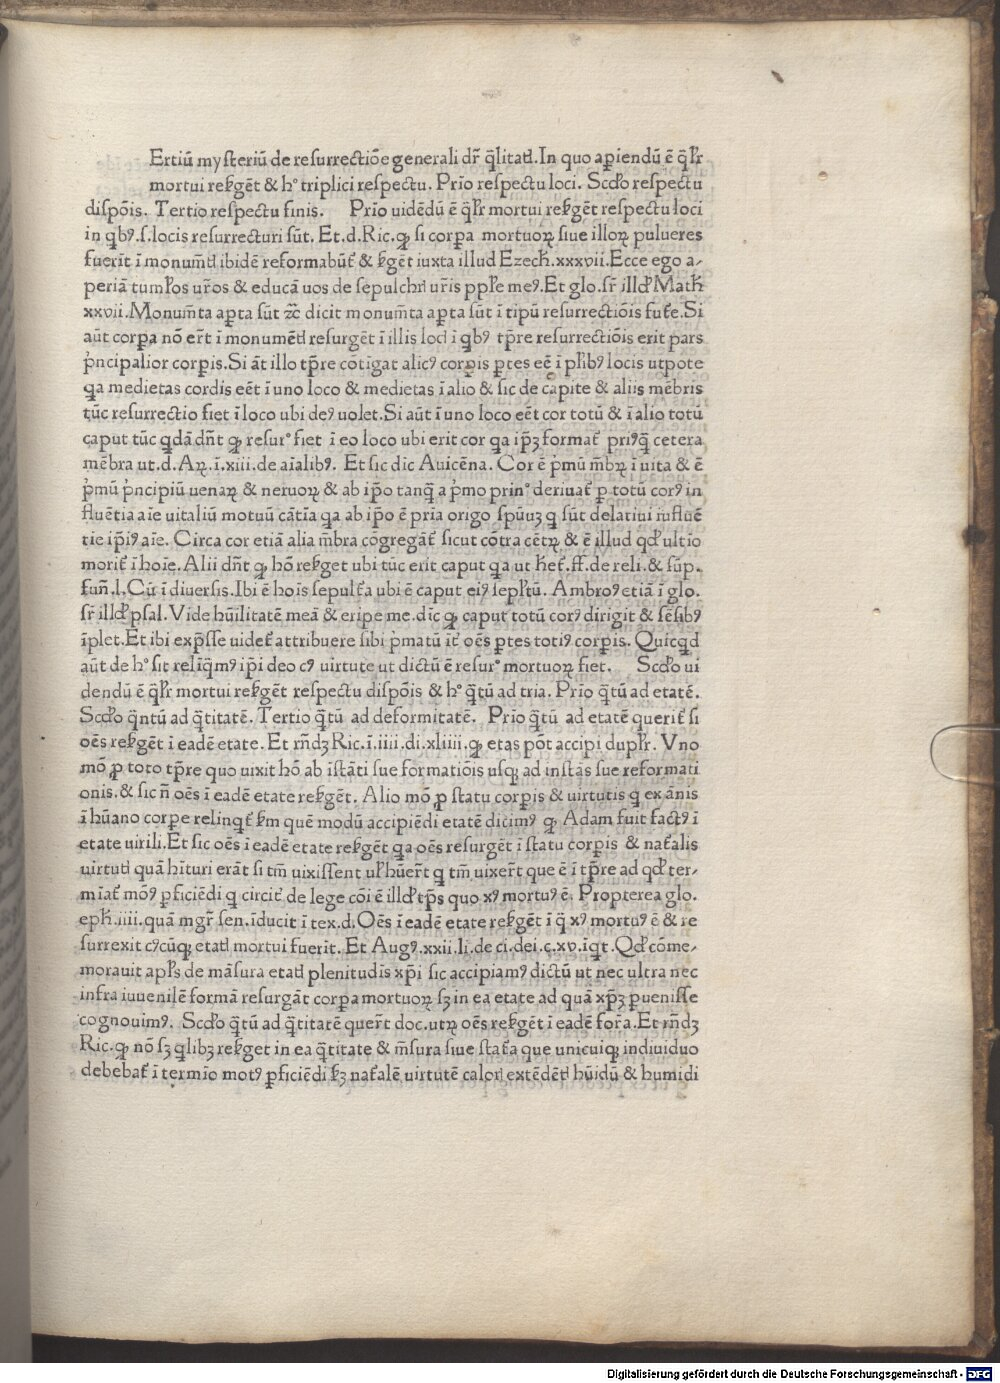 Ertiū mysteriū de resurrectiōe generali dr̄ q̄litatꝭ. In quo aꝑiendū ē q̄lr̄
mortui resꝫgēt & h° triplici respectu. Prīo respectu loci. Scd̄o respectu
dispōis. Tertio respectu finis. Prīo uidēdū ē q̄lr̄ mortui resꝫgēt respectu loci
in qbꝰ.s.locis resurrecturi sūt. Et.d.Ric.ꝙ si corꝑa mortuoꝝ siue illoꝝ pulueres
fuerīt ī monum̄tꝭ ibidē reformabūt̄ & sꝫgēt iuxta illud Ezech̄.xxxvii.Ecce ego a-
periā tumlos ur̄os & educā uos de sepulchrꝭ ur̄is pple meꝰ.Et glo.sr̄ illd̄ Math̄
xxvii.Monum̄ta aꝑta sūt ⁊c̄ dicit monum̄ta aꝑta sūt ī tipū resurrectiōis fut̄e.Si
aūt corꝑa nō er̄t ī monumētꝭ resurgēt ī illis locꝭ ī qbꝰ tp̄re resurrectiōis erit pars
p̍ncipalior corꝑis.Si āt illo tp̄re cōtīgat alicꝰ corꝑis ꝑtes eē ī pl̍ibꝰ locis utpote
qa medietas cordis eēt ī uno loco & medietas ī alio & sic de capite & aliis mēbris
tūc resurrectio fiet ī loco ubi deꝰ uolet.Si aūt ī uno loco eēt cor totū & ī alio totū
caput tūc qdā dn̄t ꝙ resur° fiet ī eo loco ubi erit cor qa ip̄ꝫ format̄ priꝰq̄ cetera
mēbra ut.d.Aꝝ.ī.xiii.de aīalibꝰ. Et sic dic Auicēna. Cor ē p̍mū m̄bꝝ ī uita & ē
p̍mū p̍ncipiū uenaꝝ & neruoꝝ & ab ip̄o tanq̄ a p̍mo prin° deriuat̄ ꝑ totū corꝰ in
fluētia aīe uitaliū motuū cātīa qa ab ip̄o ē pria origo spūuꝫ q sūt delatiui īfluē
tie ip̄iꝰ aīe. Circa cor etiā alia m̄bra cōgregāt̄ sicut cōtra cētꝝ & ē illud qd̄ ultīo
morit̄ ī hoīe. Alii dn̄t ꝙ hō resꝫget ubi tūc erit caput qa ut het̄.ff.de reli.& sūp.
fun̄.l.Cū ī diuersis.Ibi ē hoīs sepult̄a ubi ē caput eiꝰ sepl̄tū. Ambroꝰ etiā ī glo.
sr̄ illd̄ psal.Vide hūilitatē meā & eripe me.dic ꝙ caput totū corꝰ dirigit & sēsibꝰ
īplet.Et ibi exp̄sse uidet̄ attribuere sibi p̍matū īt̄ oēs ꝑtes totiꝰ corꝑis. Quicqd
aūt de h° sit relīqmꝰ ip̄i deo cꝰ uirtute ut dictū ē resur° mortuoꝝ fiet. Scd̄o ui
dendū ē q̄lr̄ mortui resꝫgēt respectu dispōis & h° q̄tū ad tria. Prīo q̄tū ad etatē.
Scd̄o q̄ntū ad q̄titatē. Tertio q̄tū ad deformitatē. Prīo q̄tū ad etatē querit̄ si
oēs resꝫgēt ī eadē etate. Et rn̄dꝫ Ric.ī.iiii.di.xliiii.ꝙ etas pōt accipi duplr̄. Vno
mō ꝓ toto tp̄re quo uixit hō ab īstāti sue formatiōis usqꝫ ad instās sue reformati
onis.& sic n̄ oēs ī eadē etate resꝫgēt. Alio mō ꝓ statu corꝑis & uirtutis q ex ānis
ī hūano corꝑe relinqt̄ sm̄ quē modū accipiēdi etatē dicimꝰ ꝙ Adam fuit factꝰ ī
etate uirili.Et sic oēs ī eadē etate resꝫgēt qa oēs resurgēt ī statu corꝑis & nat̄alis
uirtutꝭ quā hīturi erāt si tm̄ uixissent ul̍ hūer̄t q tm̄ uixer̄t que ē ī tp̄re ad qd̄ ter-
mīat̄ mōꝰ ꝓficiēdi q circit̄ de lege cōi ē illd̄ tp̄s quo xꝰ mortuꝰ ē. Propterea glo.
eph̄.iiii.quā mgr̄ sen.īducit ī tex.d.Oēs ī eadē etate resꝫgēt ī q̄ xꝰ mortuꝰ ē & re
surrexit cꝰcūqꝫ etatꝭ mortui fuerīt. Et Augꝰ.xxii.li.de ci.dei.c.xv.īqt. Qd̄ cōme-
morauit apl̄s de māsura etatꝭ plenitudīs xp̄i sic accipiamꝰ dictū ut nec ultra nec
infra iuuenilē formā resurgāt corꝑa mortuoꝝ sꝫ in ea etate ad quā xp̄ꝫ ꝑuenisse
cognouimꝰ. Scd̄o q̄tū ad q̄titatē quer̄t doc.utꝝ oēs resꝫgēt ī eadē for̄a.Et rn̄dꝫ
Ric.ꝙ nō sꝫ qlibꝫ resꝫget in ea q̄titate & m̄sura siue stat̄a que unicuiqꝫ indiuiduo
debebat̄ ī termīo motꝰ ꝓficiēdi sꝫ nat̄alē uirtutē calorꝭ extēdētꝭ hūidū & humidi
Digitalisierung gefördert durch die Deutsche Forschungsgemeinschaft - DFG